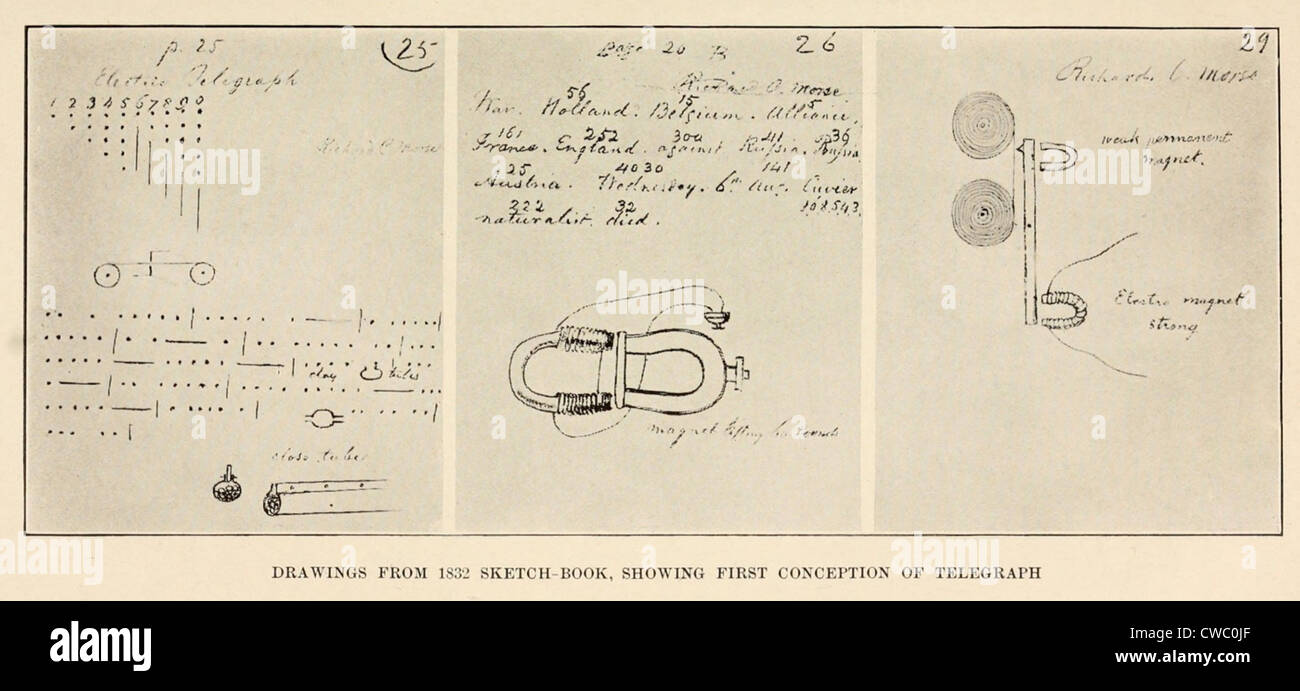 p. 25
25
Electric Telegraph
1 2 3 4 5 6 7 8 9 0
Richard C. Morse
clay tubes
close tubes
Page 20
26
Richard C. Morse
56 15 5
War. Holland. Belgium. Alliance.
161 252 300 41 36
France. England. against Russia. Prussia
25 4030 141
Austria. Wednesday. 6th Aug. Cuvier
222 32 10.8.5.4.3.
naturalist. died.
magnet lifting
29
Richard C. Morse
weak permanent
magnet.
Electro magnet
strong
DRAWINGS FROM 1832 SKETCH-BOOK, SHOWING FIRST CONCEPTION OF TELEGRAPH
alamy
Image ID: CWC0JF
www.alamy.com